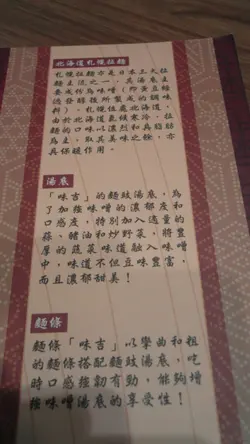 北海道札幌拉麵
札幌拉麵亦是日本三大拉
麵主流之一，其湯底主
要成份為味噌（即黃豆經
過發酵後所製成的調味
料）。札幌位處北海道，
由於北海道氣候寒冷，拉
麵的口味以濃烈和具脂肪
為主，取其美味之餘，亦
具保暖作用。
湯底
「味吉」的麵豉湯底，為
了加強味噌的濃郁度和
口感度，特別加入適量的
蒜、豬油和炒野菜，將豐
厚的蔬菜味道融入味噌
中，味道不但豆味豐富，
而且濃郁甜美！
麵條
麵條「味吉」以彎曲和粗
的麵條搭配麵豉湯底，吃
時口感強韌有勁，能夠增
強味噌湯底的享受性！